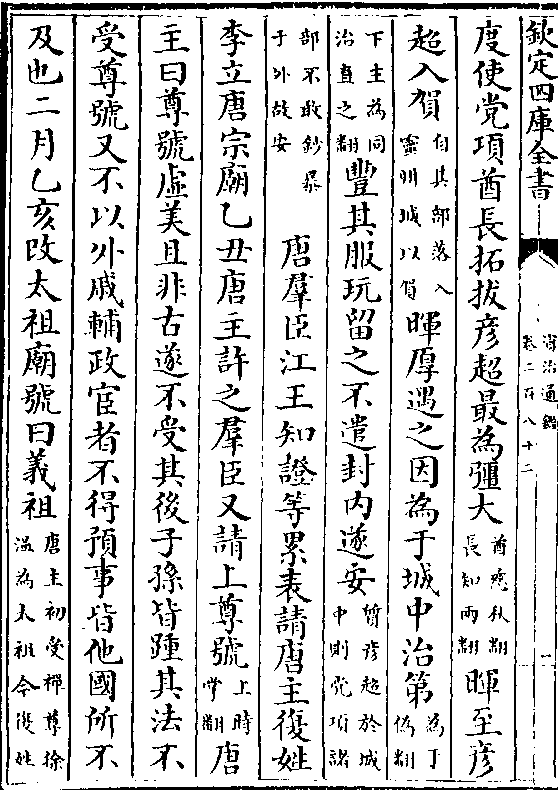 欽定四庫全書
資治通鑑
卷二百八十二
一
度使党項酋長拓拔彦超最為彊大酋慈秋翻長知兩翻暉至彦
超入賀自其部落入靈州城以賀暉厚遇之因為于城中治第為于偽翻
下主為同治直之翻豐其服玩留之不遣封内遂安質彦超於城中則党項諸
部不敢鈔暴于外故安　唐羣臣江王知證等累表請唐主復姓
李立唐宗廟乙丑唐主許之羣臣又請上尊號上時掌翻唐
主曰尊號虚美且非古遂不受其後子孫皆踵其法不
受尊號又不以外戚輔政宦者不得預事皆他國所不
及也二月乙亥改太祖廟號曰義祖唐主初受禪尊徐溫為太祖今復姓